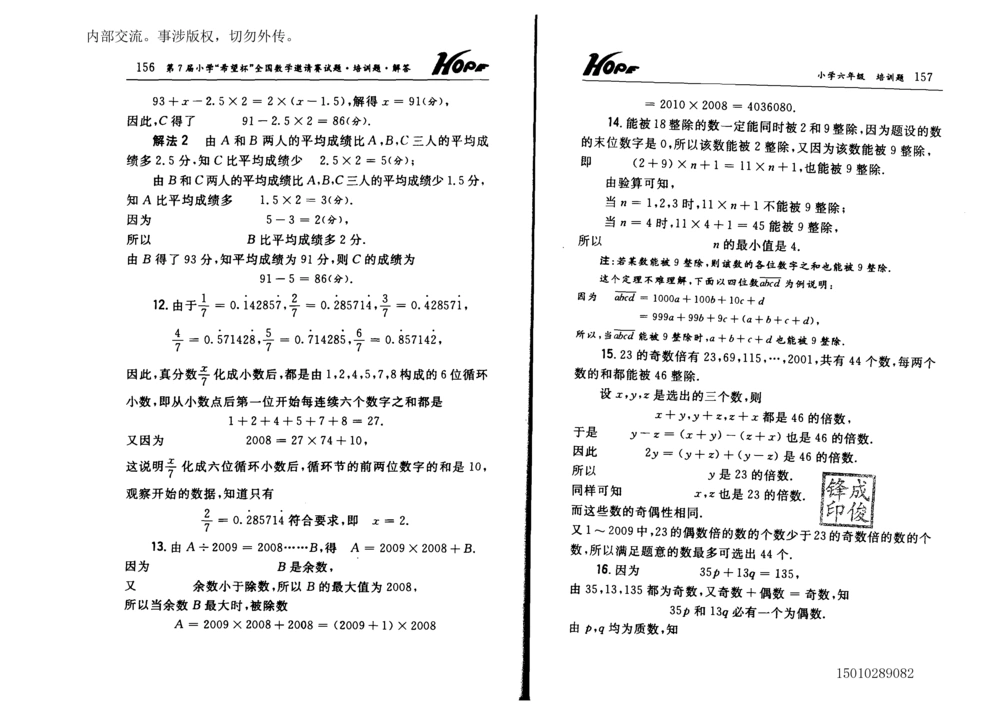 内部交流。事涉版权，切勿外传。
156 第7届小学“希望杯”全国数学邀请赛试题·培训题·解答 HOPE
93+x-2.5×2=2×(x-1.5),解得 x=91(分),
因此,C得了 91-2.5×2=86(分).
解法2 由A和B两人的平均成绩比A,B,C三人的平均成
绩多2.5分,知C比平均成绩少 2.5×2=5(分);
由B和C两人的平均成绩比A,B,C三人的平均成绩少1.5分,
知A比平均成绩多 1.5×2=3(分).
因为 5-3=2(分),
所以 B比平均成绩多2分.
由B得了93分,知平均成绩为91分,则C的成绩为
91-5=86(分).
12.由于1/7=0.1̇42857̇,2/7=0.2̇85714̇,3/7=0.4̇28571̇,
4/7=0.5̇71428̇,5/7=0.7̇14285̇,6/7=0.8̇57142̇,
因此,真分数x/7化成小数后,都是由1,2,4,5,7,8构成的6位循环
小数,即从小数点后第一位开始每连续六个数字之和都是
1+2+4+5+7+8=27.
又因为 2008=27×74+10,
这说明x/7化成六位循环小数后,循环节的前两位数字的和是10,
观察开始的数据,知道只有
2/7=0.2̇85714̇符合要求,即 x=2.
13.由A÷2009=2008……B,得 A=2009×2008+B.
因为 B是余数,
又 余数小于除数,所以B的最大值为2008,
所以当余数B最大时,被除数
A=2009×2008+2008=(2009+1)×2008
HOPE 小学六年级 培训题 157
=2010×2008=4036080.
14.能被18整除的数一定能同时被2和9整除,因为题设的数
的末位数字是0,所以该数能被2整除,又因为该数能被9整除,
即 (2+9)×n+1=11×n+1,也能被9整除.
由验算可知,
当n=1,2,3时,11×n+1不能被9整除;
当n=4时,11×4+1=45能被9整除,
所以 n的最小值是4.
注:若某数能被9整除,则该数的各位数字之和也能被9整除.
这个定理不难理解,下面以四位数abcd为例说明:
因为 abcd=1000a+100b+10c+d
=999a+99b+9c+(a+b+c+d),
所以,当abcd能被9整除时,a+b+c+d也能被9整除.
15.23的奇数倍有23,69,115,…,2001,共有44个数,每两个
数的和都能被46整除.
设x,y,z是选出的三个数,则
x+y,y+z,z+x都是46的倍数,
于是 y-z=(x+y)-(z+x)也是46的倍数.
因此 2y=(y+z)+(y-z)是46的倍数.
所以 y是23的倍数.
同样可知 x,z也是23的倍数.
而这些数的奇偶性相同.
又1～2009中,23的偶数倍的数的个数少于23的奇数倍的数的个
数,所以满足题意的数最多可选出44个.
16.因为 35p+13q=135,
由35,13,135都为奇数,又奇数+偶数=奇数,知
35p和13q必有一个为偶数.
由p,q均为质数,知
成俊
锋印
15010289082